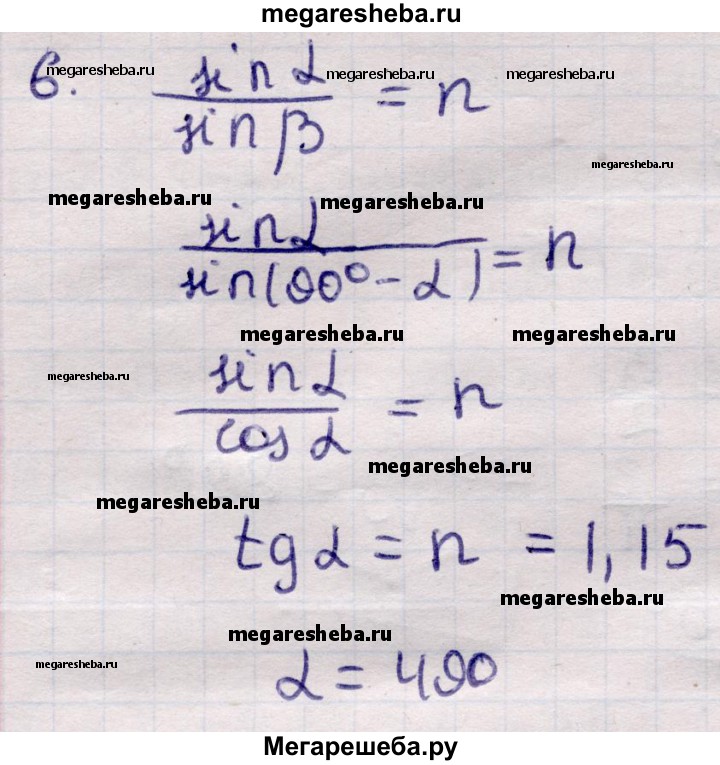 megaresheba.ru
6. sin α / sin β = n
megaresheba.ru megaresheba.ru megaresheba.ru
megaresheba.ru
megaresheba.ru megaresheba.ru
sin α / sin(90° - α) = n
megaresheba.ru megaresheba.ru
megaresheba.ru
sin α / cos α = n
megaresheba.ru
megaresheba.ru
tg α = n = 1,15
megaresheba.ru
megaresheba.ru
megaresheba.ru
α = 490
Мегарешеба.ру